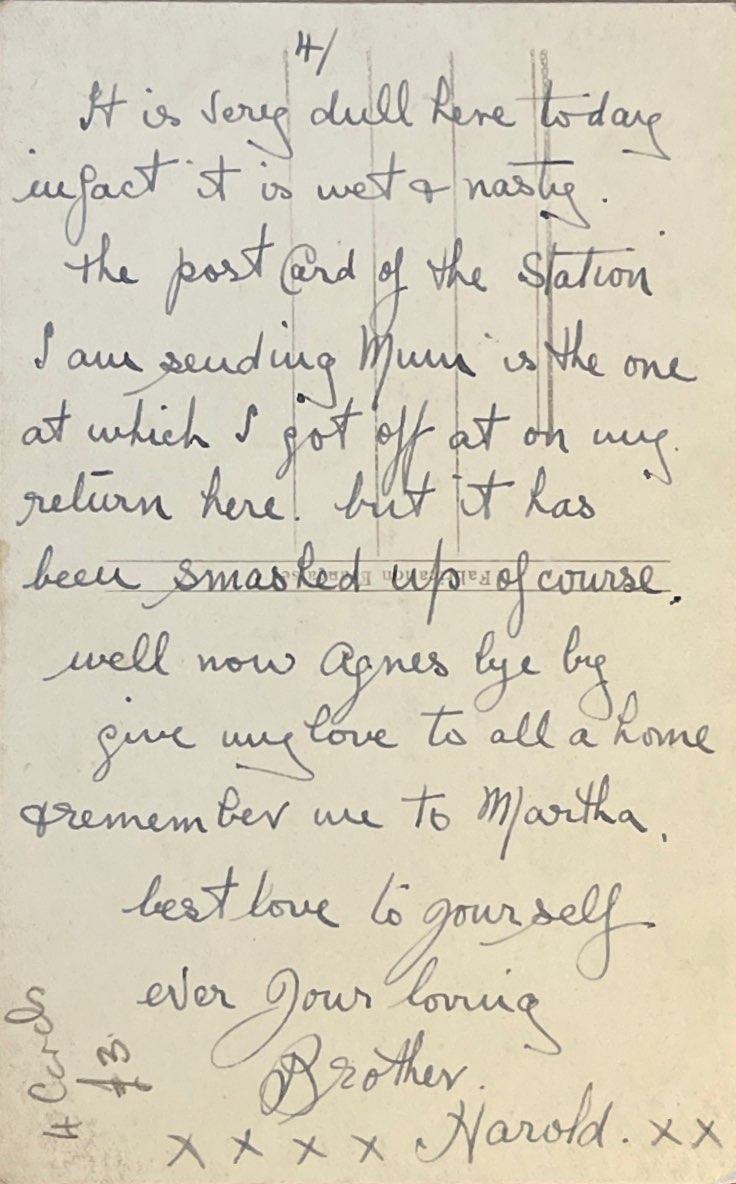 4/
It is very dull here today
infact it is wet & nasty.
The post Card of the Station
I am sending Mum is the one
at which I got off at on my
return here. but it has
been smashed up of course.
well now Agnes bye by
give my love to all a home
& remember me to Martha.
best love to yourself
ever your loving
Brother.
x x x x Harold. x x
4 Cards
£3
Fabrication Française